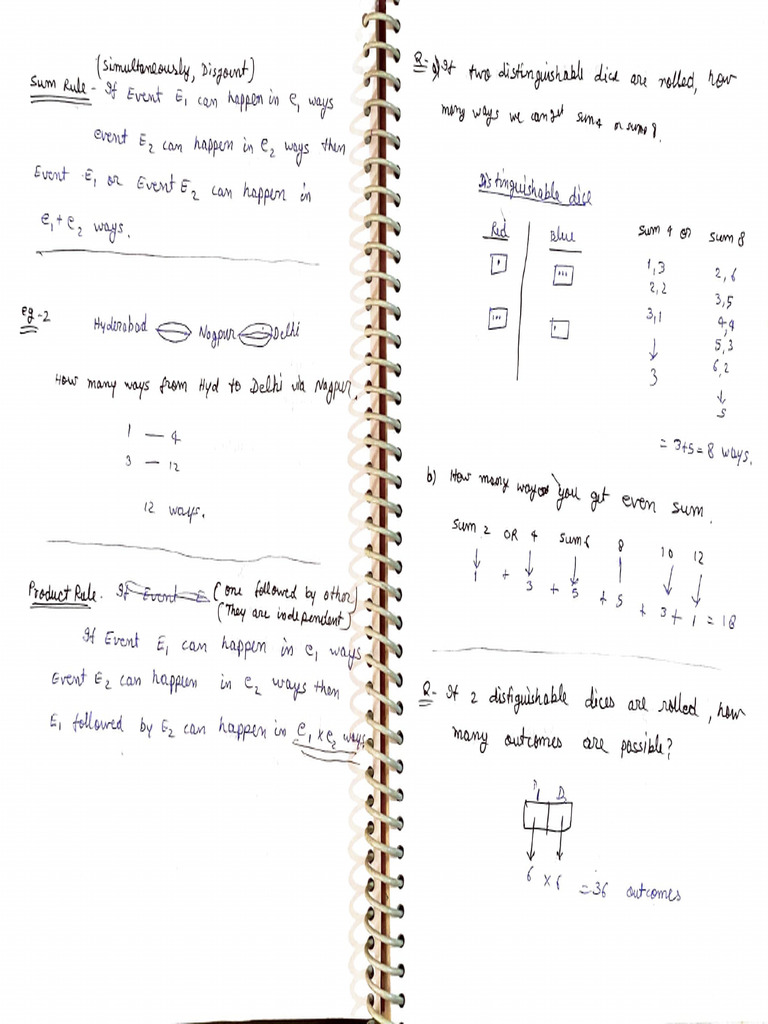 (Simultaneously, Disjount)
Sum Rule - If Event E1 can happen in e1 ways
event E2 can happen in e2 ways then
Event E1 or Event E2 can happen in
e1 + e2 ways.
eg-2
Hyderabad Nagpur Delhi
How many ways from Hyd to Delhi via Nagpur.
1 — 4
3 — 12
12 ways.
Product Rule. If Event E (one followed by other)
(They are independent)
If Event E1 can happen in e1 ways
Event E2 can happen in e2 ways then
E1 followed by E2 can happen in e1 x e2 ways
Q- a) If two distinguishable dice are rolled, how
many ways we can get sum 4 or sum 8.
Distinguishable dice
Red Blue sum 4 or sum 8
1,3 2,6
2,2 3,5
3,1 4,4
5,3
3 6,2
5
= 3+5 = 8 ways.
b) How many ways you get even sum.
sum 2 OR 4 sum 6 8 10 12
1 + 3 + 5 + 5 + 3 + 1 = 18
Q- If 2 distiguishable dices are rolled, how
many outcomes are possible?
6 x 6 = 36 outcomes